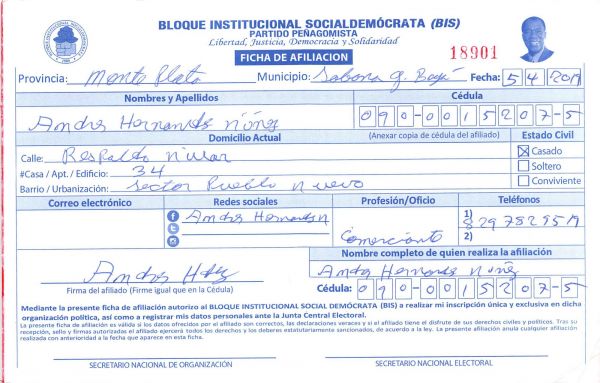 BLOQUE INSTITUCIONAL SOCIALDEMÓCRATA (BIS)
PARTIDO PEÑAGOMISTA
Libertad, Justicia, Democracia y Solidaridad
FICHA DE AFILIACION
18901
Provincia: Monte Plata Municipio: Sabana G. Boyá Fecha: 5 4 2019
Nombres y Apellidos Cédula
Andres Hernandez núñez 090-0015207-5
Domicilio Actual (Anexar copia de cédula del afiliado) Estado Civil
Calle: Respaldo Casado
#Casa / Apt. / Edificio: 34 Soltero
Barrio / Urbanización: Sector Pueblo nuevo Conviviente
Correo electrónico Redes sociales Profesión/Oficio Teléfonos
Andres Hernandez n 1) 8297829519
Comerciante 2)
Nombre completo de quien realiza la afiliación
Andres Hdez Andres Hernandez Núñez
Firma del afiliado (Firme igual que en la Cédula) Cédula: 090-0015207-5
Mediante la presente ficha de afiliación autorizo al BLOQUE INSTITUCIONAL SOCIAL DEMÓCRATA (BIS) a realizar mi inscripción única y exclusiva en dicha
organización política, así como a registrar mis datos personales ante la Junta Central Electoral.
La presente ficha de afiliación es válida si los datos ofrecidos por el afiliado son correctos, las declaraciones veraces y si el afiliado tiene el disfrute de sus derechos civiles y políticos. Tras su
recepción, sello y firmas autorizadas el afiliado ejercerá todos los derechos y los deberes estatutariamente sancionados, de acuerdo a la ley. La presente afiliación anula cualquier afiliación
realizada con anterioridad a la fecha que aparece en esta ficha.
SECRETARIO NACIONAL DE ORGANIZACIÓN SECRETARIO NACIONAL ELECTORAL